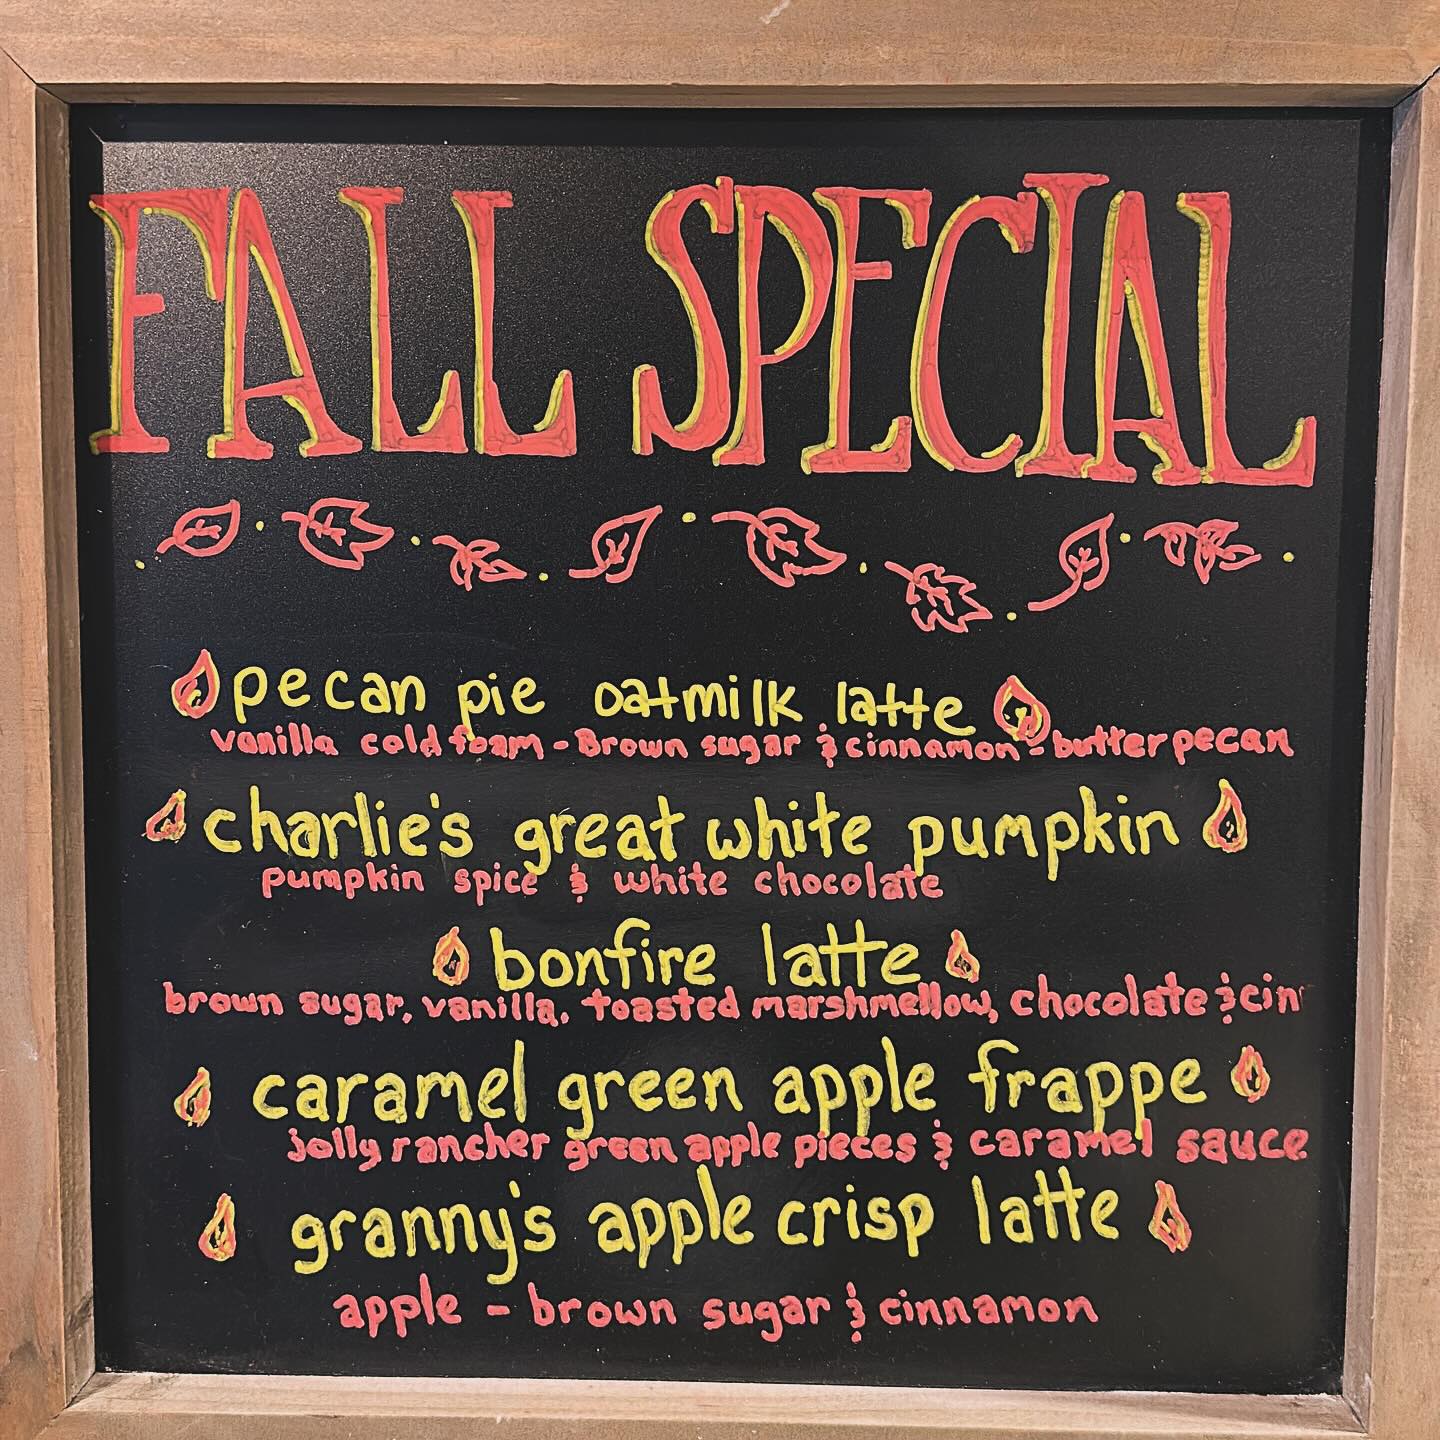 FALL SPECIAL
pecan pie oatmilk latte
vanilla cold foam - Brown sugar & cinnamon - butter pecan
charlie's great white pumpkin
pumpkin spice & white chocolate
bonfire latte
brown sugar, vanilla, toasted marshmellow, chocolate & cin
caramel green apple frappe
jolly rancher green apple pieces & caramel sauce
granny's apple crisp latte
apple - brown sugar & cinnamon